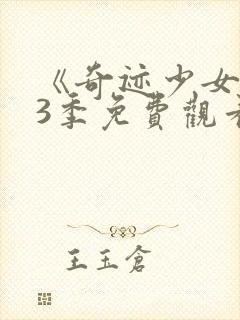 《奇迹少女
3季免費觀看
王玉倉